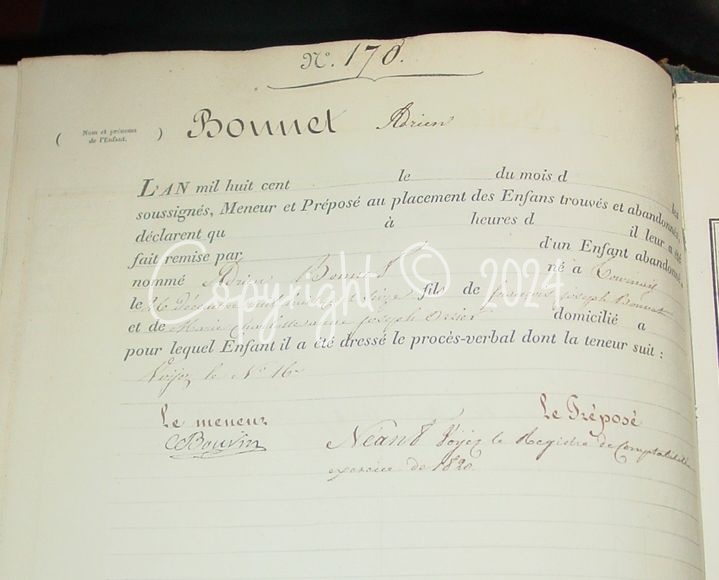 N°. 178.
( Nom et prénoms de l'Enfant. ) Bonnet Adrien
LAN mil huit cent le du mois d les
soussignés, Meneur et Préposé au placement des Enfans trouvés et abandonnés,
déclarent qu à heures d il leur a été
fait remise par d'un Enfant abandonné
nommé Bonnet né à Tournay
le 16 fils de françois joseph Bonnet
et de Marie joseph domicilié a
pour lequel Enfant il a été dressé le procès-verbal dont la teneur suit :
Voyez le N° 16
Le meneur Le Préposé
Bouvin Néant Voyez le Registre de Comptabilité
exercice de 1820
Copyright © 2024